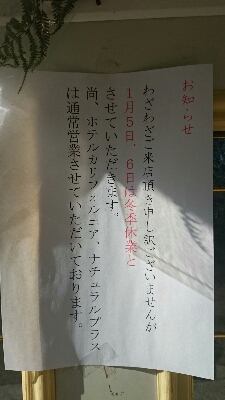 お知らせ
わざわざご来店頂き申し訳ございませんが
1月5日、6日は冬季休業と
させていただきます。
尚、ホテルカリフォルニア、ナチュラルプラス
は通常営業させていただいております。